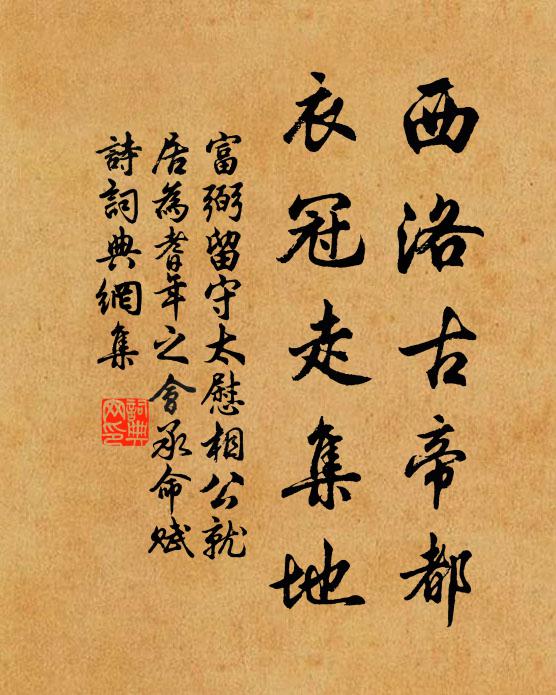 西洛古帝都
衣冠走集地
富弼留守太慰相公就
居為耆年之會承命賦
詩詞典網集
詞典
网印